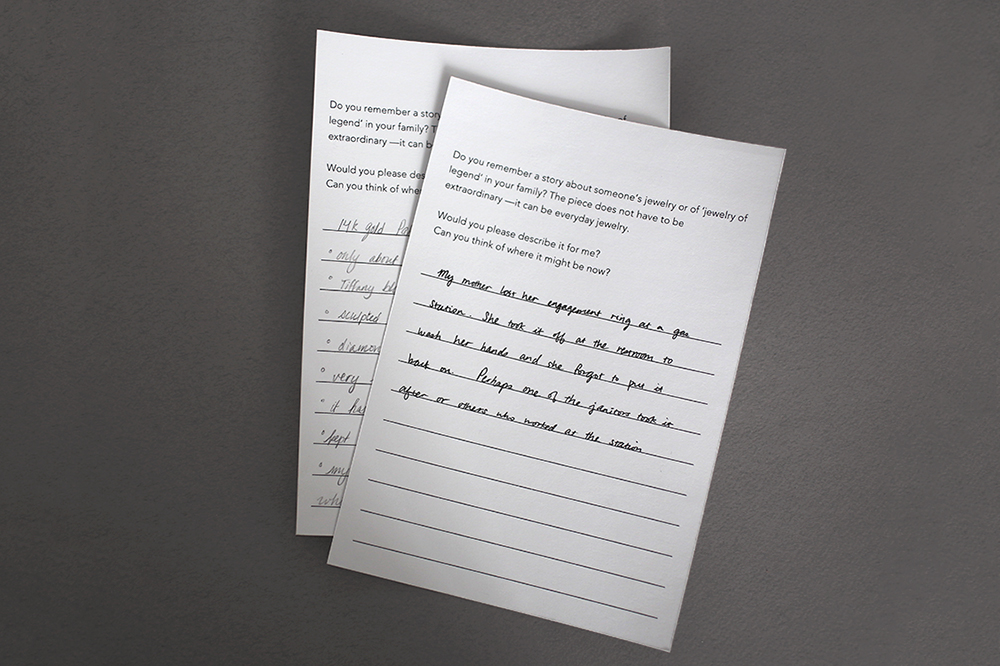 Do you remember a stor
of
legend' in your family? T
extraordinary —it can b
Would you please des
Can you think of whe
14k gold Pa
° only about
° Tiffany
° sculpted
° diamon
° very
° it has
° kept
° my
whe
Do you remember a story about someone's jewelry or of 'jewelry of
legend' in your family? The piece does not have to be
extraordinary —it can be everyday jewelry.
Would you please describe it for me?
Can you think of where it might be now?
My mother lost her engagement ring at a gas
station. She took it off at the restroom to
wash her hands and she forgot to put it
back on. Perhaps one of the janitors took it
after or others who worked at the station